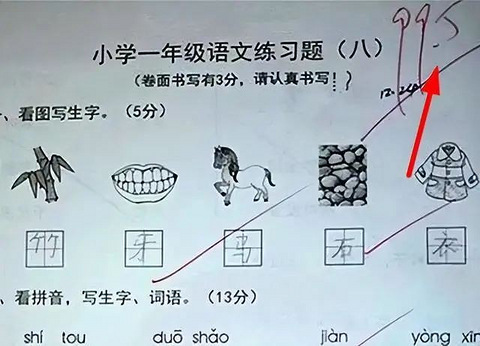 小学一年级语文练习题（八）
99.5
（卷面书写有3分，请认真书写！）
、看图写生字。（5分）
竹 牙 马 石 衣
、看拼音，写生字、词语。（13分）
shí tou duō shǎo jiàn yòng xīn